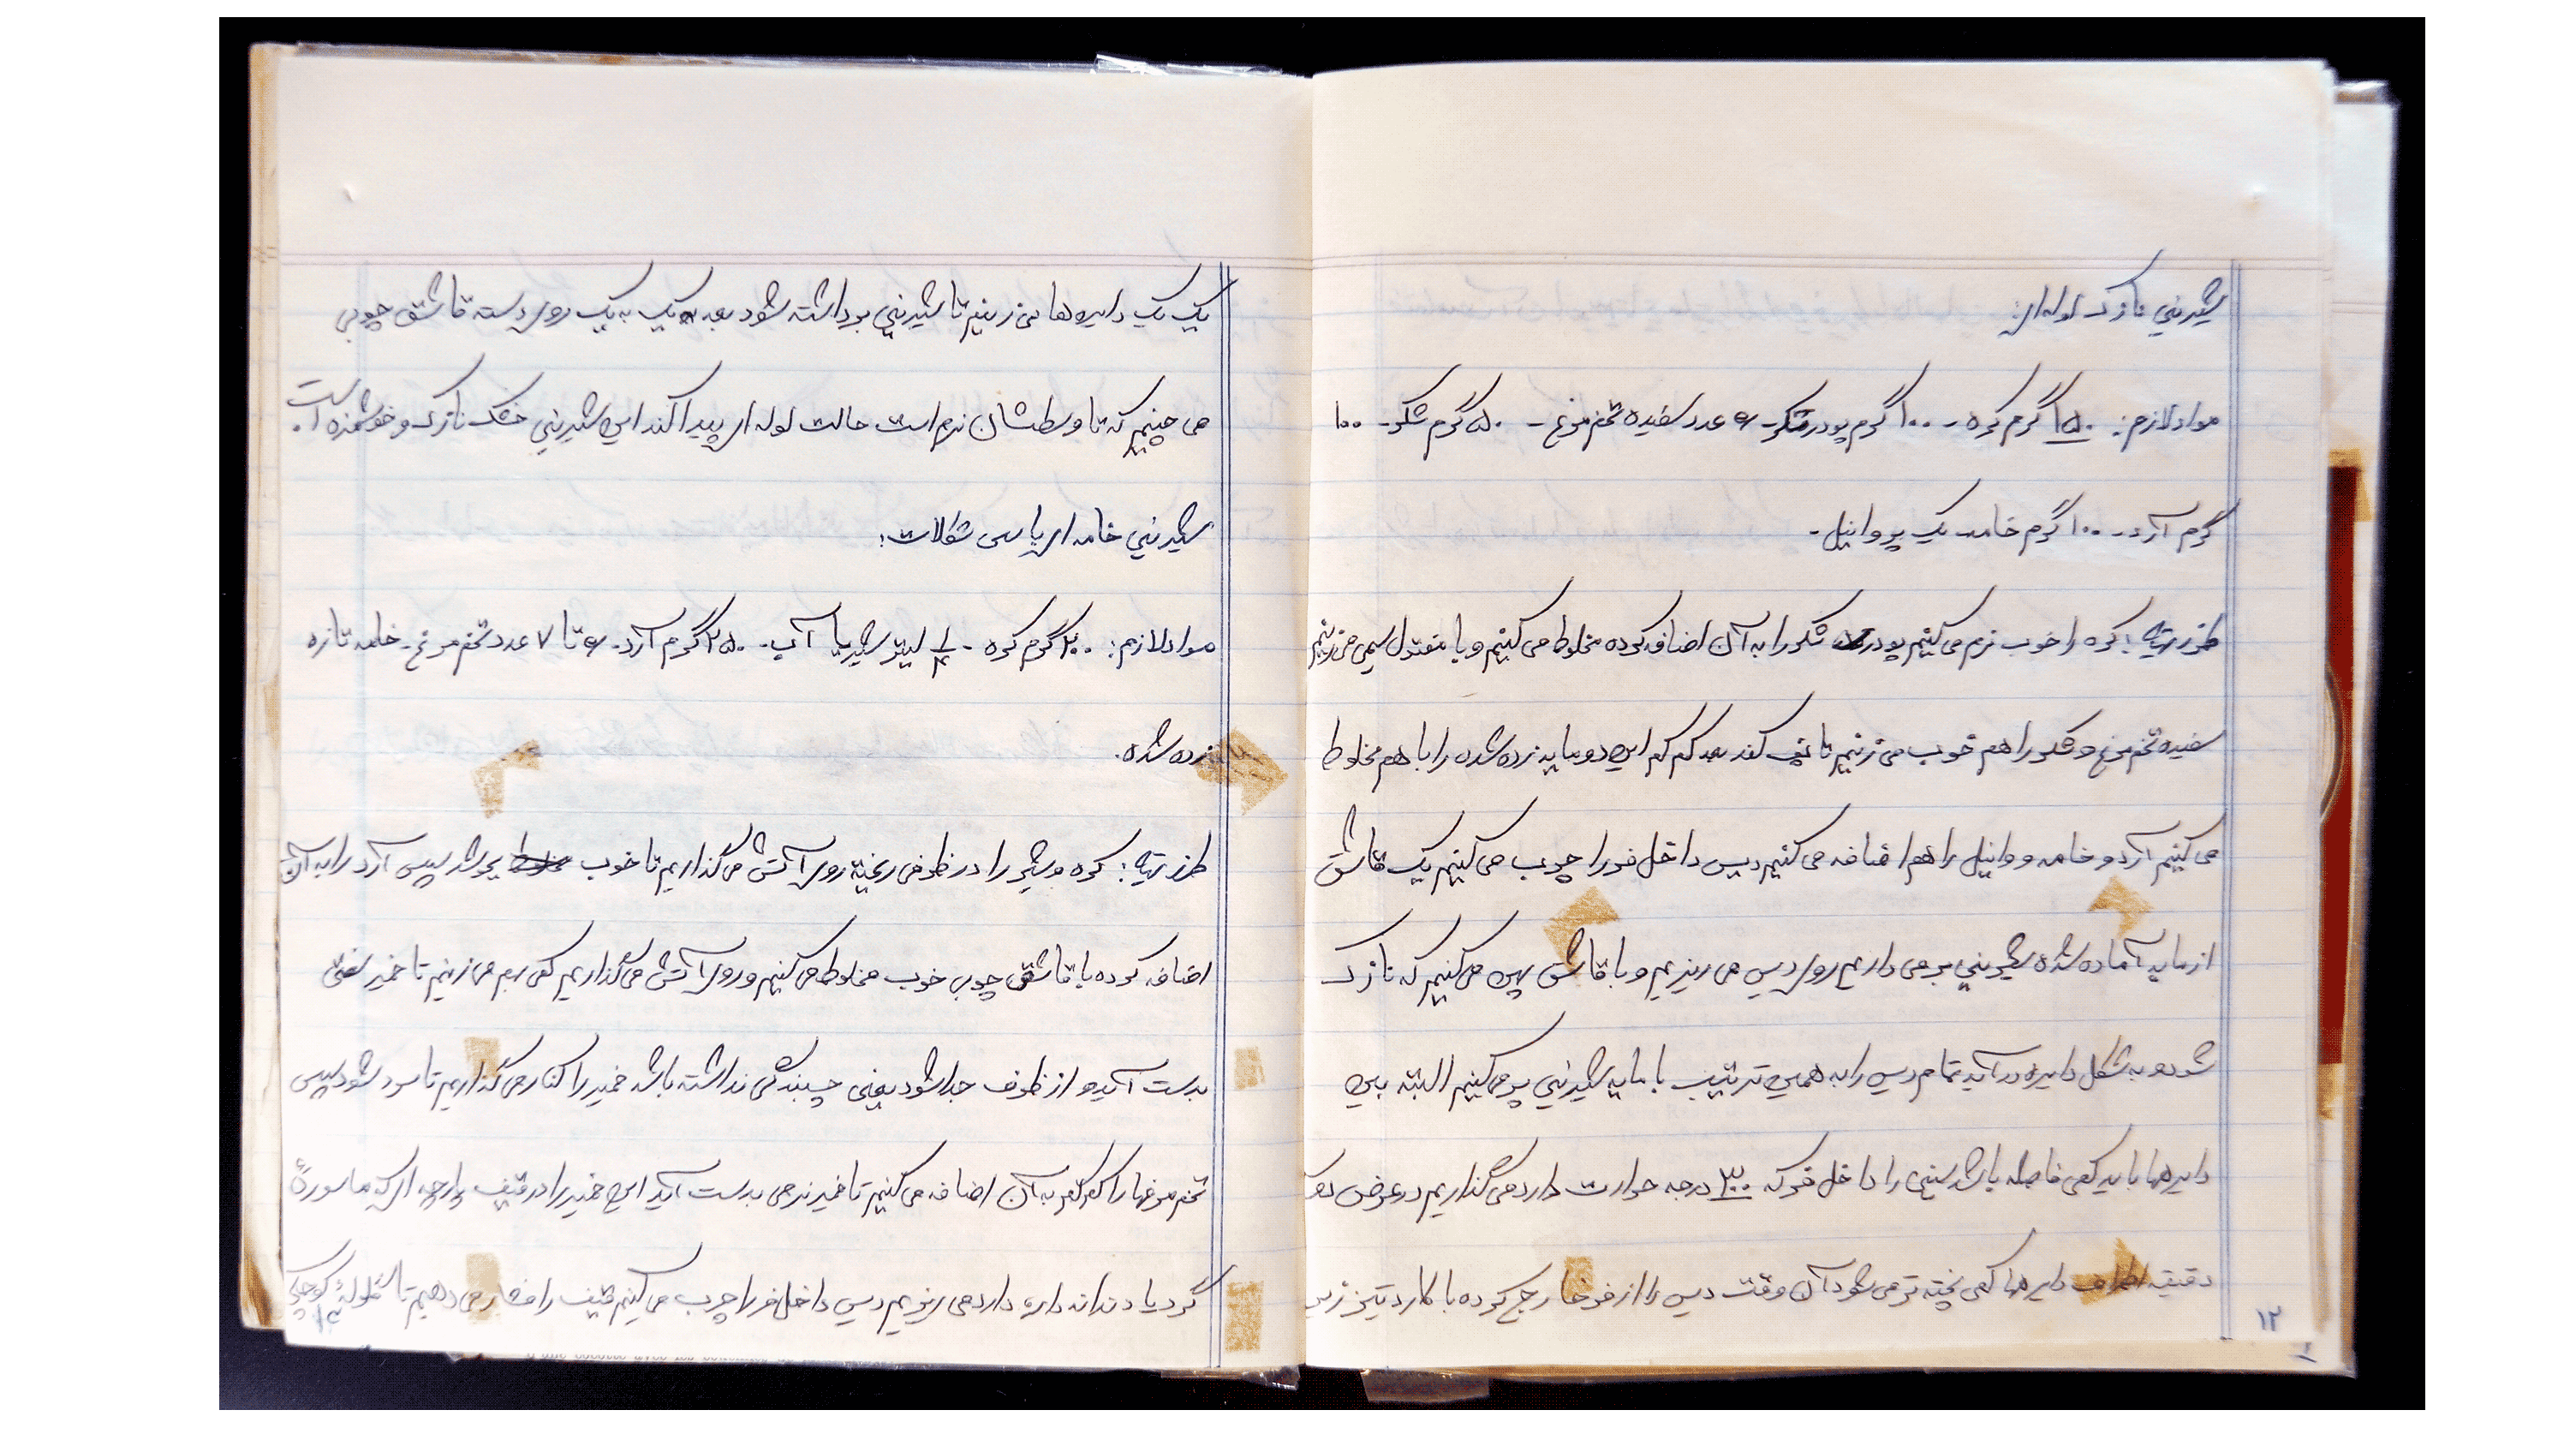 شیرینی نازک لوله‌ای:
مواد لازم: ۱۵۰ گرم کره - ۱۰۰ گرم پودر شکر - ۶ عدد سفیده تخم مرغ - ۵۰ گرم شکر - ۱۰۰
گرم آرد - ۱۰۰ گرم خامه یک پر وانیل -
طرز تهیه: کره را خوب نرم می کنیم پودر شکر را به آن اضافه کرده مخلوط می کنیم و با مفتول سیمی می زنیم
سفیده تخم مرغ و شکر را هم خوب می زنیم تا پف کند بعد کم کم این دو مایه زده شده را با هم مخلوط
می کنیم آرد و خامه و وانیل را هم اضافه می کنیم دیس داخل فر را چرب می کنیم یک قاشق
از مایه آماده شده شیرینی بر می داریم روی دیس می ریزیم و با قاشق پهن می کنیم که نازک
شود و به شکل دایره در آید تمام دیس را به همین ترتیب با مایه شیرینی پر می کنیم البته بین
دایره‌ها باید کمی فاصله باشد سینی را داخل فر که ۳۰۰ درجه حرارت دارد می گذاریم در عرض
دقیقه اطراف دایره‌ها کمی پخته تر می شود آن وقت دیس را از فر خارج کرده با کارد تیز زیر
۱۲
یک یک دایره‌ها می زنیم تا شیرینی برداشته شود بعد یک به یک روی دسته قاشق چوبی
می چینیم که تا وسطشان نرم است حالت لوله ای پیدا کند این شیرینی خشک نازک و خوشمزه است.
شیرینی خامه ای با سس شکلات:
مواد لازم: ۲۰۰ گرم کره - ۱/۴ لیتر شیر یا آب - ۲۵۰ گرم آرد - ۶ تا ۷ عدد تخم مرغ - خامه تازه
زده شده.
طرز تهیه: کره و شیر را در ظرفی ریخته روی آتش می گذاریم تا خوب بجوشد سپس آرد را به آن
اضافه کرده با قاشق چوبی خوب مخلوط می کنیم و روی آتش می گذاریم کمی بهم می زنیم تا خمیر سفتی
بدست آید و از ظرف جدا شود یعنی چسبندگی نداشته باشد خمیر را کنار می گذاریم تا سرد شود سپس
تخم مرغها را کم کم به آن اضافه می کنیم تا خمیر نرمی بدست آید این خمیر را در قیف پارچه ای که ماسورهٔ
گرد یا دندانه داره دارد می ریزیم دیس داخل فر را چرب می کنیم قیف را فشار می دهیم تا گلولهٔ کوچکی